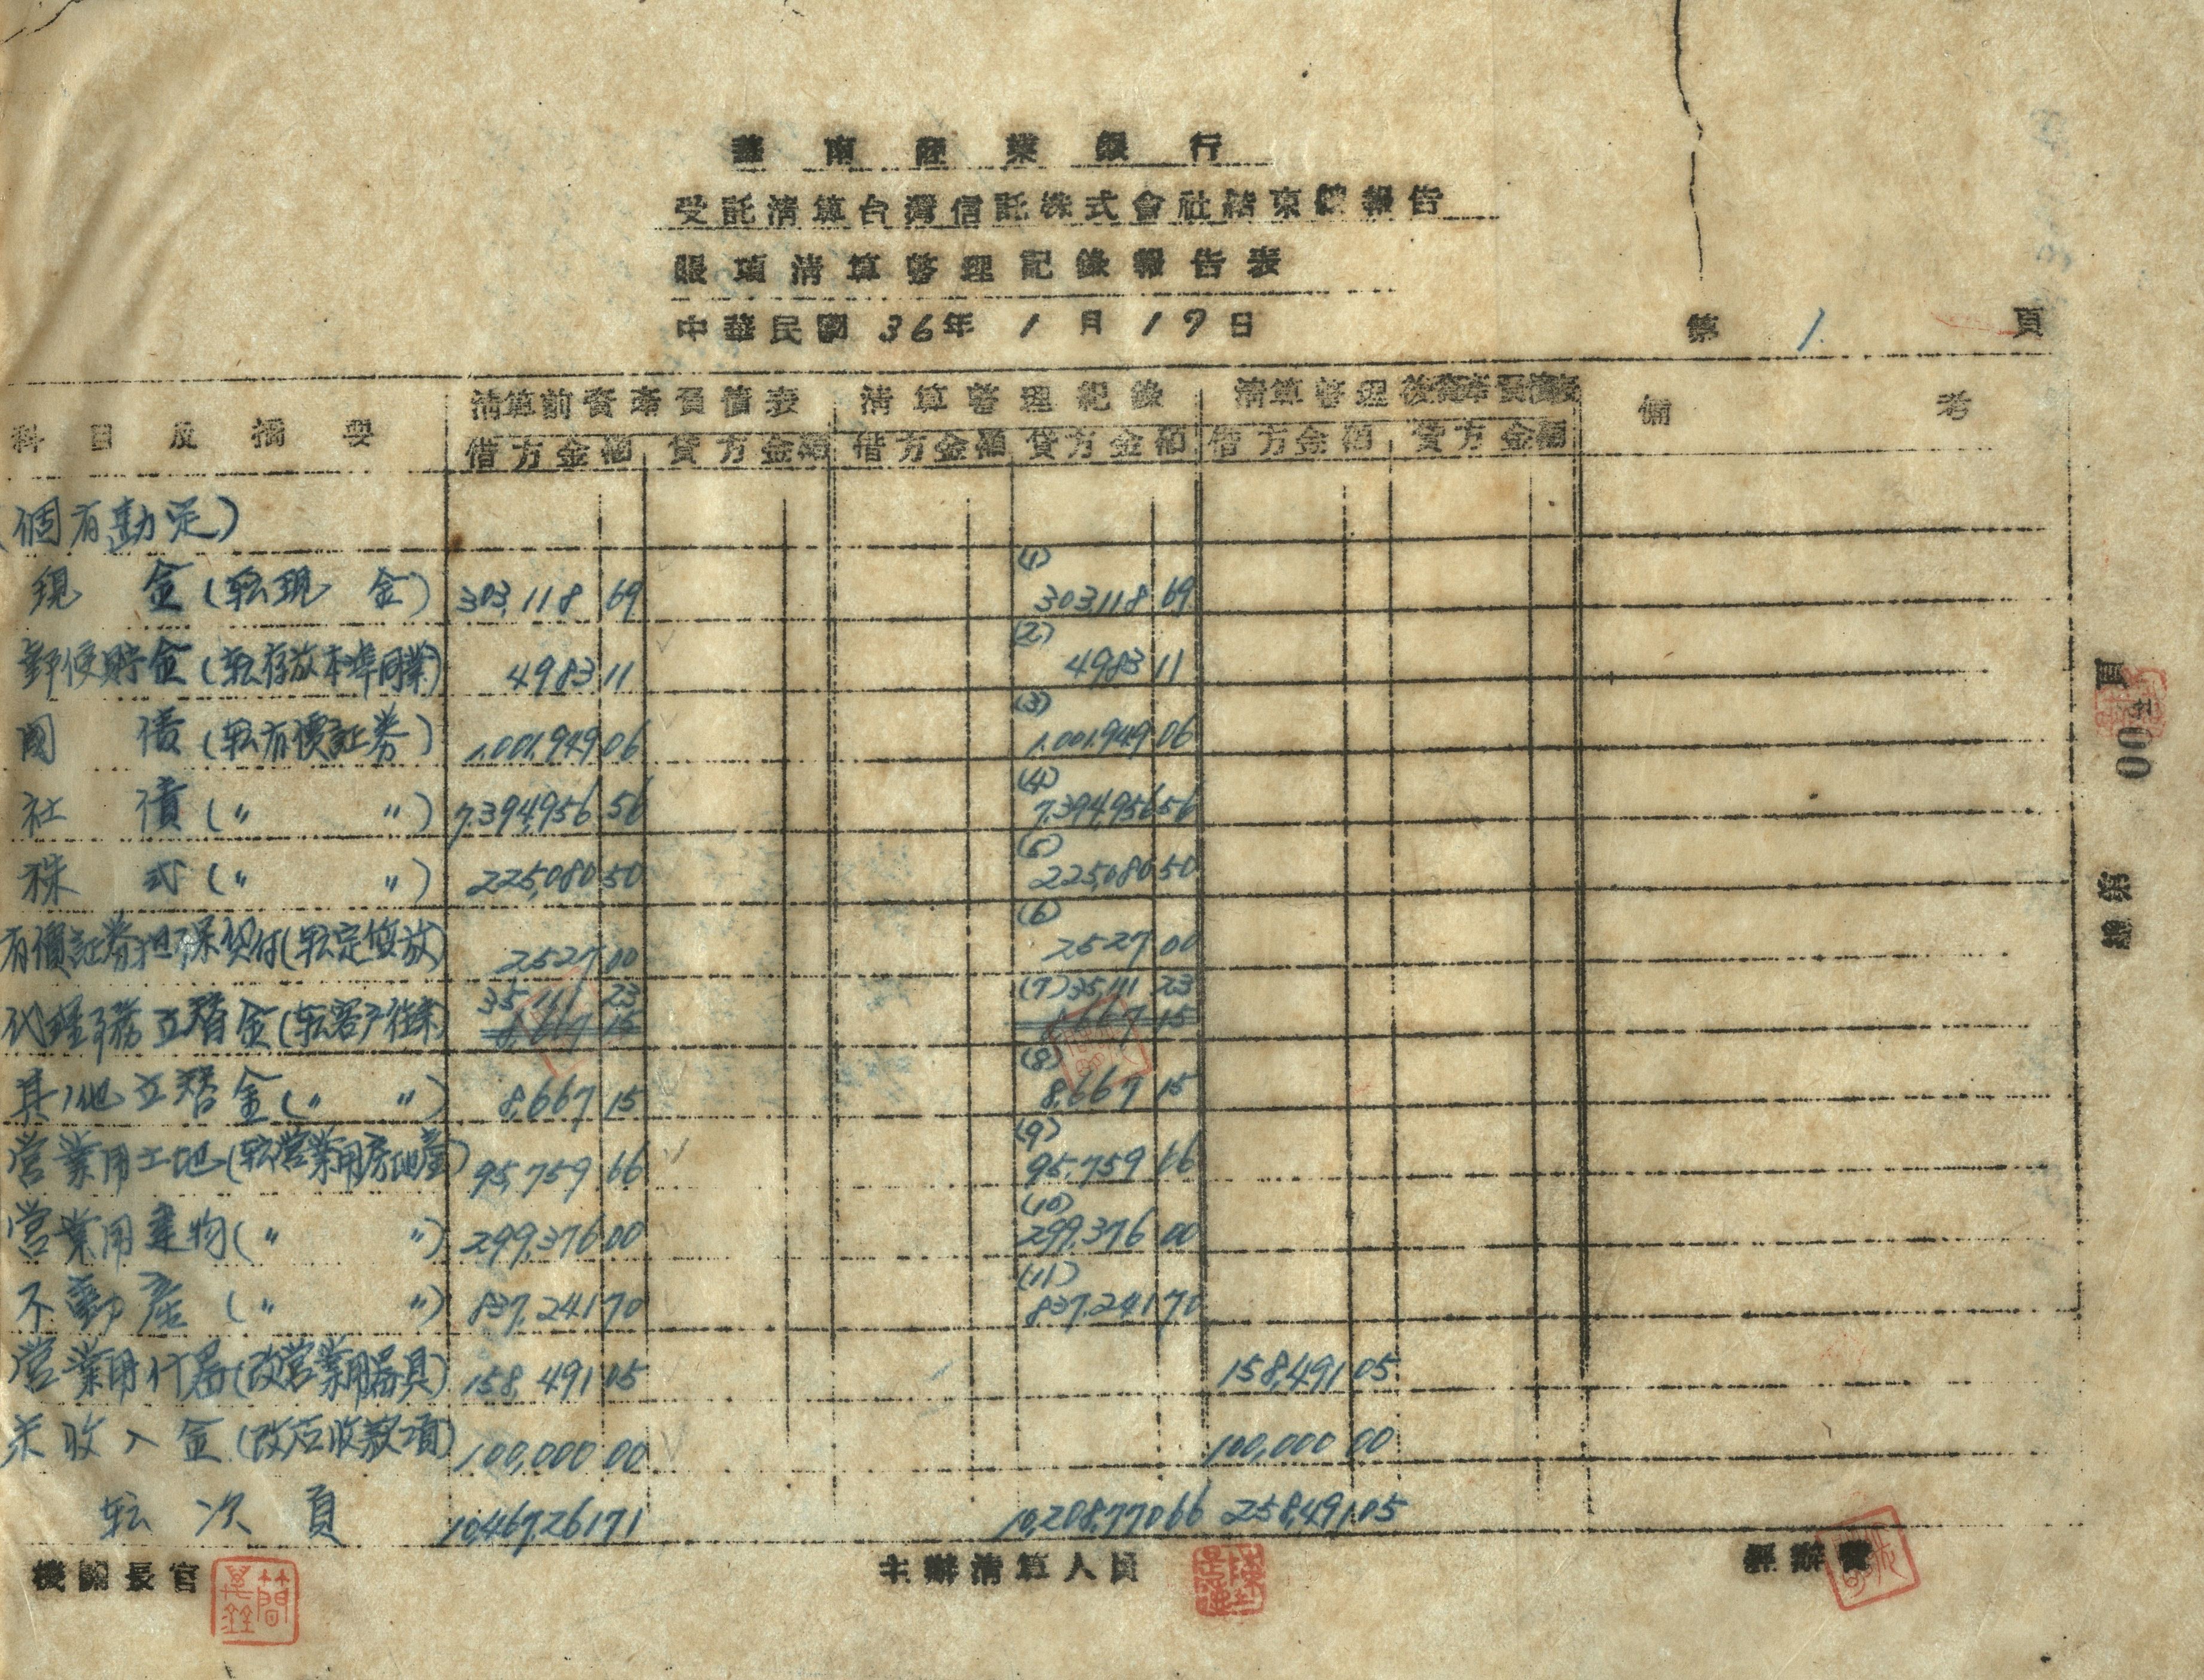 華南産業銀行
受託清算台灣信託株式會社結束總報告
賬項清算整理記錄報告表
中華民國 36年 1月 17日
第 1. 頁
科目及摘要 清算前資產負債表 清算整理紀錄 清算整理後資產負債表 備考
借方金額 貸方金額 借方金額 貸方金額 借方金額 貸方金額
(個有勘定)
現金(転現金) 303,118 69 (1) 303,118 69
郵便貯金(転存放本埠同業) 4,983 11 (2) 4,983 11
國債(転有價証券) 1,001,949 06 (3) 1,001,949 06
社債(〃 〃) 7,394,956 56 (4) 7,394,956 56
株式(〃 〃) 225,080 50 (5) 225,080 50
有價証券担保貸付(転定質放) 2,527 00 (6) 2,527 00
代理事務立替金(転客戶往来) 35,111 23 (7) 35,111 23
8,667 15 8,667 15
其他立替金(〃 〃) 8,667 15 (8) 8,667 15
営業用土地(転営業用房地産) 95,759 66 (9) 95,759 66
営業用建物(〃 〃) 299,376 00 (10) 299,376 00
不動産(〃 〃) 837,241 70 (11) 837,241 70
営業用什器(改営業用器具) 158,491 05 158,491 05
未收入金(改応收款項) 100,000 00 100,000 00
転次頁 10,467,261 71 10,208,770 66 258,491 05
機關長官 主辦清算人員 經辦員
總第 頁